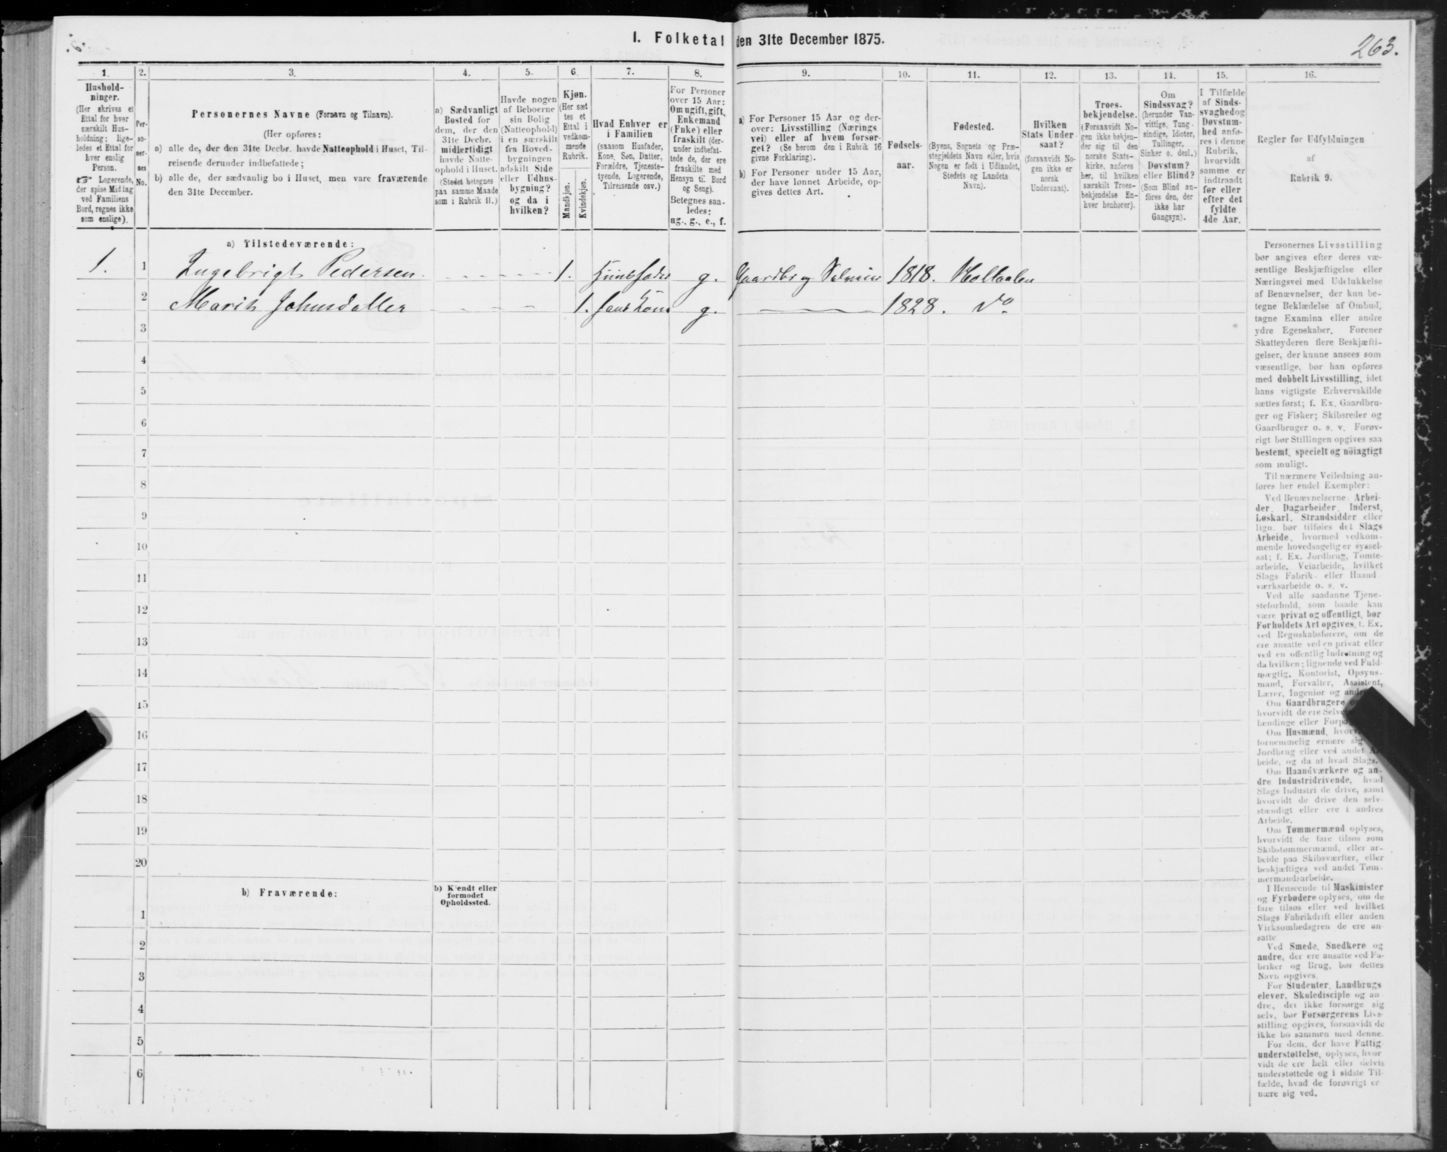 I. Folketal den 31te December 1875.
263.
1.
Hushold-
ninger.
(Her skrives et
Ettal for hver
særskilt Hus-
holdning; lige-
ledes et Ettal for
hver enslig
Person.
Logerende,
der spise Middag
ved Familiens
Bord, regnes ikke
som enslige).
2.
Per-
so-
ner-
nes
No.
3.
Personernes Navne (Fornavn og Tilnavn).
(Her opføres:
a) alle de, der den 31te Decbr. havde Natteophold i Huset, Til-
reisende derunder indbefattede;
b) alle de, der sædvanlig bo i Huset, men vare fraværende
den 31te December.
4.
a) Sædvanligt
Bosted for
dem, der den
31te Decbr.
midlertidigt
havde Natte-
ophold i Huset.
(Stedet betegnes
paa samme Maade
som i Rubrik 11.)
5.
Havde nogen
af Beboerne
sin Bolig
(Natteophold)
i en særskilt
fra Hoved-
bygningen
adskilt Side
eller Udhus-
bygning?
og da i
hvilken?
6.
Kjøn.
(Her sæt
tes et
Ettal i
vedkom-
mende
Rubrik.
Mandkjøn.
Kvindekjøn.
7.
Hvad Enhver er
i Familien
(saasom Husfader,
Kone, Søn, Datter,
Forældre, Tjeneste-
tyende, Logerende,
Tilreisende osv.)
8.
For Personer
over 15 Aar:
Om ugift, gift,
Enkemand
(Enke) eller
fraskilt (der-
under indbefat-
tede de, der ere
fraskilte med
Hensyn til Bord
og Seng).
Betegnes saa-
ledes:
ug., g., e., f.
9.
a) For Personer 15 Aar og der-
over: Livsstilling (Nærings
vei) eller af hvem forsør-
get? (Se herom den i Rubrik 16
givne Forklaring).
b) For Personer under 15 Aar,
der have lønnet Arbeide, op-
gives dettes Art.
10.
Fødsels-
aar.
11.
Fødested.
(Byens, Sognets og Præ-
stegjeldets Navn eller, hvis
Nogen er født i Udlandet,
Stedets og Landets
Navn).
12.
Hvilken
Stats Under
saat?
(forsaavidt No-
gen ikke er
norsk
Undersaat).
13.
Troes-
bekjendelse.
(Forsaavidt No-
gen ikke bekjen-
der sig til den
norske Stats-
kirke, anføres
her, til hvilken
særskilt Troes-
bekjendelse En-
hver henhører).
14.
Om
Sindssvag?
(herunder Van-
vittige, Tung
sindige, Idioter,
Tullinger,
Sinker o. desl.)
Døvstum?
eller Blind?
(Som Blind an-
føres den, der
ikke har
Gangsyn).
15.
I Tilfælde
af Sinds-
svaghed og
Døvstum-
hed anfø-
res i denne
Rubrik,
hvorvidt
samme er
indtraadt
før eller
efter det
fyldte
4de Aar.
16.
Regler for Udfyldningen
af
Rubrik 9.
a) Tilstedeværende:
1. 1 Ingebrigt Pedersen 1. Huusfader g. Gaardbrug Selveier 1818. Holtaalen
2 Marit Johnsdatter 1. hans Kone g. 1828. Do
3
4
5
6
7
8
9
10
11
12
13
14
15
16
17
18
19
20
b) Fraværende:
b) Kjendt eller
formodet
Opholdssted.
1
2
3
4
5
6
Personernes Livsstilling
bør angives efter deres væ-
sentlige Beskjæftigelse eller
Næringsvei med Udelukkelse
af Benævnelser, der kun be-
tegne Beklædelse af Ombud,
tagne Examina eller andre
ydre Egenskaber. Forener
Skatteyderen flere Beskjæfti-
gelser, der kunne ansees som
væsentlige, bør han opføres
med dobbelt Livsstilling, idet
hans vigtigste Erhvervskilde
sættes først; f. Ex. Gaardbru-
ger og Fisker; Skibsreder og
Gaardbruger o. s. v. Forøv-
rigt bør Stillingen opgives saa
bestemt, specielt og nøiagtigt
som muligt.
Til nærmere Veiledning an-
føres her endel Exempler:
Ved Benævnelserne Arbei-
der, Dagarbeider, Inderst,
Løskarl, Strandsidder eller
lign. bør tilføies det Slags
Arbeide, hvormed vedkom-
mende hovedsagelig er syssel-
sat; f. Ex. Jordbrug, Tomte-
arbeide, Veiarbeide, hvilket
Slags Fabrik- eller Haand-
værksarbeide o. s. v.
Ved alle saadanne Tjene-
steforhold, som baade kan
være privat og offentligt, bør
Forholdets Art opgives, f. Ex.
ved Regnskabsførere, om de
ere ansatte ved en privat eller
ved en offentlig Indretning og
da hvilken; lignende ved Fuld-
mægtig, Kontorist, Opsyns-
mand, Forvalter, Assistent,
Lærer, Ingeniør og
Om Gaardbrugere
hvorvidt de ere
eller
Om Husmænd,
fornemmelig ernære
Jordbrug eller ved andet
beide, og da af hvad Slags.
Om Haandværkere og an-
dre Industridrivende, hvad
Slags Industri de drive, samt
hvorvidt de drive den selv-
stændigt eller ere i andres
Arbeide.
Om Tømmermænd oplyses,
hvorvidt de fare tilsøs som
Skibstømmermænd, eller ar-
beide paa Skibsværfter, eller
beskjæftiges ved andet Tøm-
mermandsarbeide.
I Henseende til Maskinister
og Fyrbødere oplyses, om de
fare tilsøs eller ved hvilket
Slags Fabrikdrift eller anden
Virksomhedsgren de ere an-
satte.
Ved Smede, Snedkere og
andre, der ere ansatte ved Fa-
briker og Brug, bør dettes
Navn opgives.
For Studenter, Landbrugs
elever, Skoledisciple og an-
dre, der ikke forsørge sig
selv, bør Forsørgerens Livs-
stilling opgives, forsaavidt de
ikke bo sammen med denne.
For dem, der have Fattig
understøttelse, oplyses, hvor
vidt de ere helt eller delvis
understøttede og i sidste Til-
fælde, hvad de forøvrigt er-
nære sig ved.